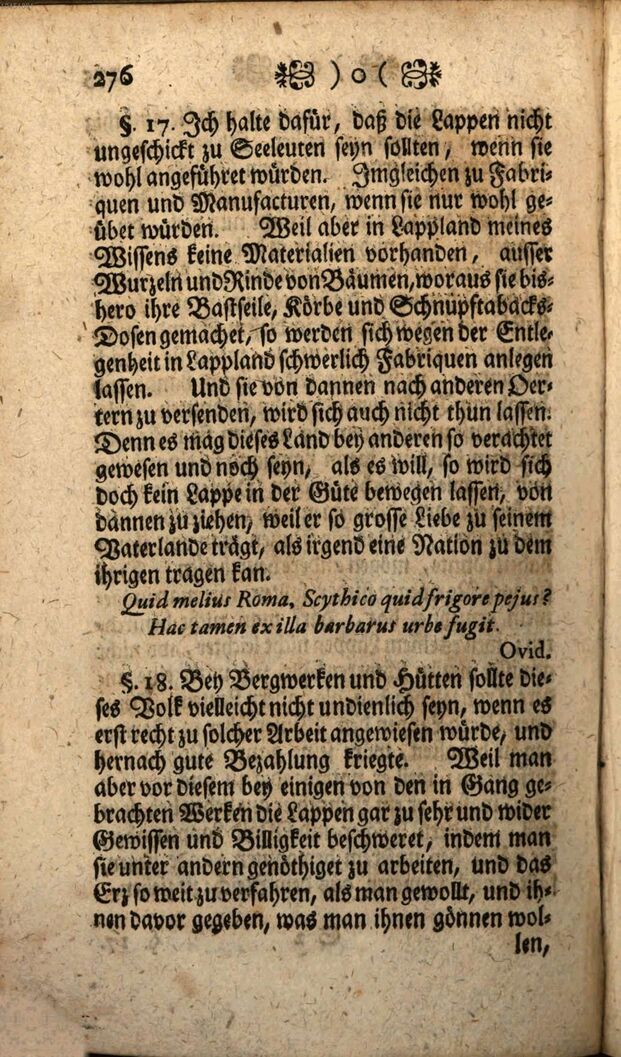 276 ) o (
§. 17. Ich halte dafür, daß die Lappen nicht
ungeschickt zu Seeleuten seyn sollten, wenn sie
wohl angeführet würden. Imgleichen zu Fabri-
quen und Manufacturen, wenn sie nur wohl ge-
übet würden. Weil aber in Lappland meines
Wissens keine Materialien vorhanden, ausser
Wurzeln und Rinde von Bäumen, woraus sie bis-
hero ihre Bastseile, Körbe und Schnupftabacks-
Dosen gemachet, so werden sich wegen der Entle-
genheit in Lappland schwerlich Fabriquen anlegen
lassen. Und sie von dannen nach anderen Oer-
tern zu versenden, wird sich auch nicht thun lassen.
Denn es mag dieses Land bey anderen so verachtet
gewesen und noch seyn, als es will, so wird sich
doch kein Lappe in der Güte bewegen lassen, von
dannen zu ziehen, weil er so grosse Liebe zu seinem
Vaterlande trägt, als irgend eine Nation zu dem
ihrigen tragen kan.
Quid melius Roma, Scythico quid frigore pejus?
Hac tamen ex illa barbarus urbe fugit.
Ovid.
§. 18. Bey Bergwerken und Hütten sollte die-
ses Volk vielleicht nicht undienlich seyn, wenn es
erst recht zu solcher Arbeit angewiesen würde, und
hernach gute Bezahlung kriegte. Weil man
aber vor diesem bey einigen von den in Gang ge-
brachten Werken die Lappen gar zu sehr und wider
Gewissen und Billigkeit beschweret, indem man
sie unter andern genöthiget zu arbeiten, und das
Erz so weit zu verfahren, als man gewollt, und ih-
nen davor gegeben, was man ihnen gönnen wol-
len,